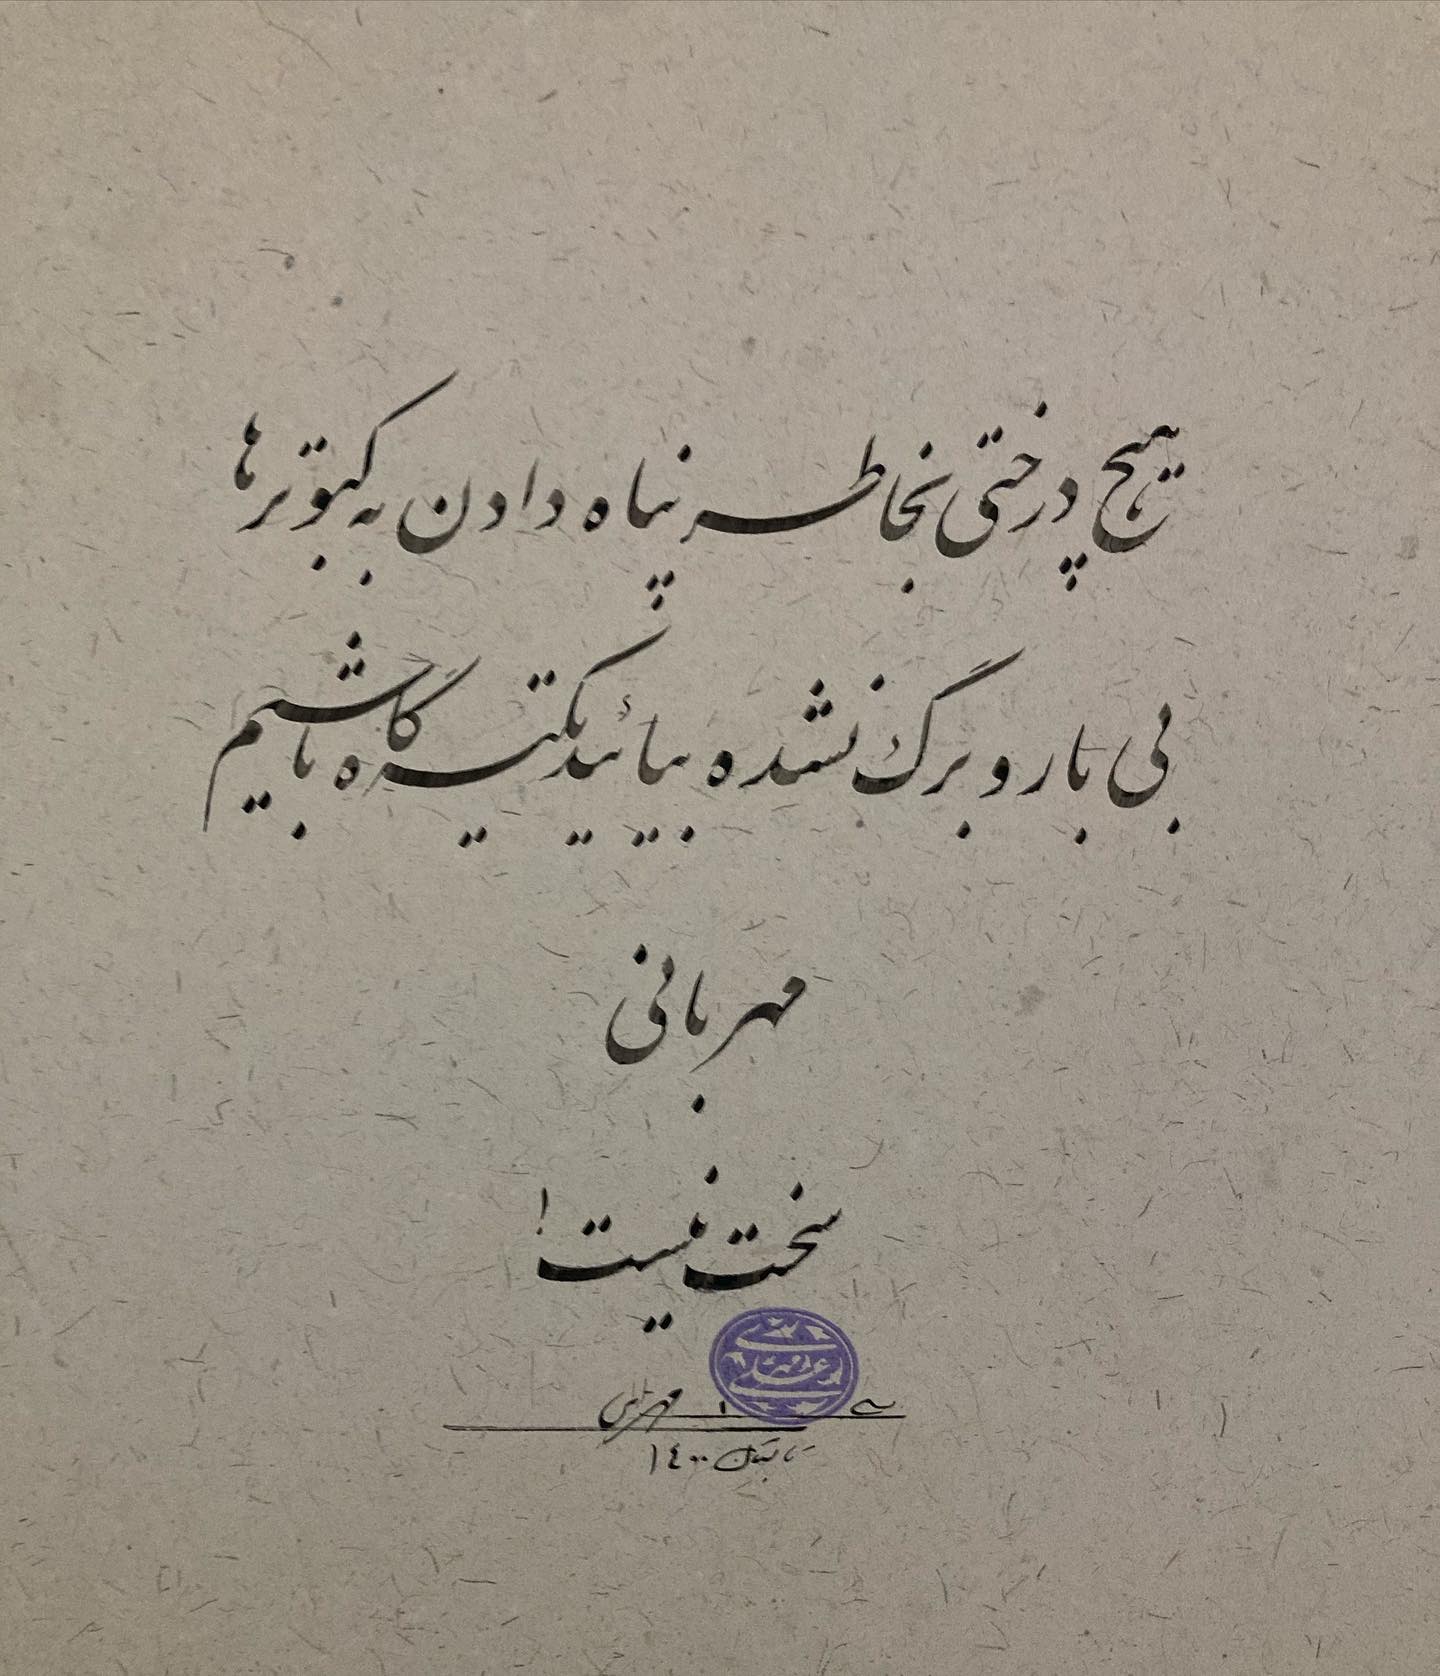 هیچ درختی بخاطر پناه دادن به کبوترها
بی بار و برگ نشده بیائید تکیه گاه باشیم
مهربانی
سخت نیست!
تابستان ۱۴۰۰